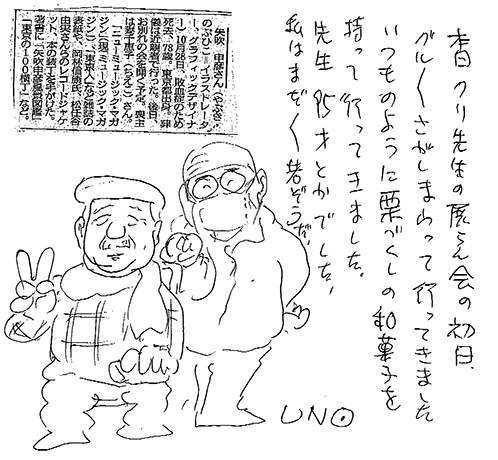 杏 クリ先生の展らん会の初日、
グルグルさがしまわって行ってきました
いつものように栗づくしの和菓子を
持って行ってきました。
先生 95才とかでした、
私はまだまだ若ぞうだ。
矢吹 申彦さん(やぶき・
のぶひこ=イラストレータ
ー、グラフィックデザイナ
ー)10月28日、敗血症のため
死去、78歳。東京都出身。葬
儀は近親者で行った。後日、
お別れの会を開く予定。喪主
は妻千恵子(ちえこ)さん。
「ニューミュージック・マガ
ジン」(現「ミュージック・マガ
ジン」)、「東京人」など雑誌の
表紙や、岡林信康氏、松任谷
由実さんらのレコードジャケ
ット、本の装丁を手がけた。
著書に「矢吹申彦風景図鑑」
「東京の100横丁」など。
UNO